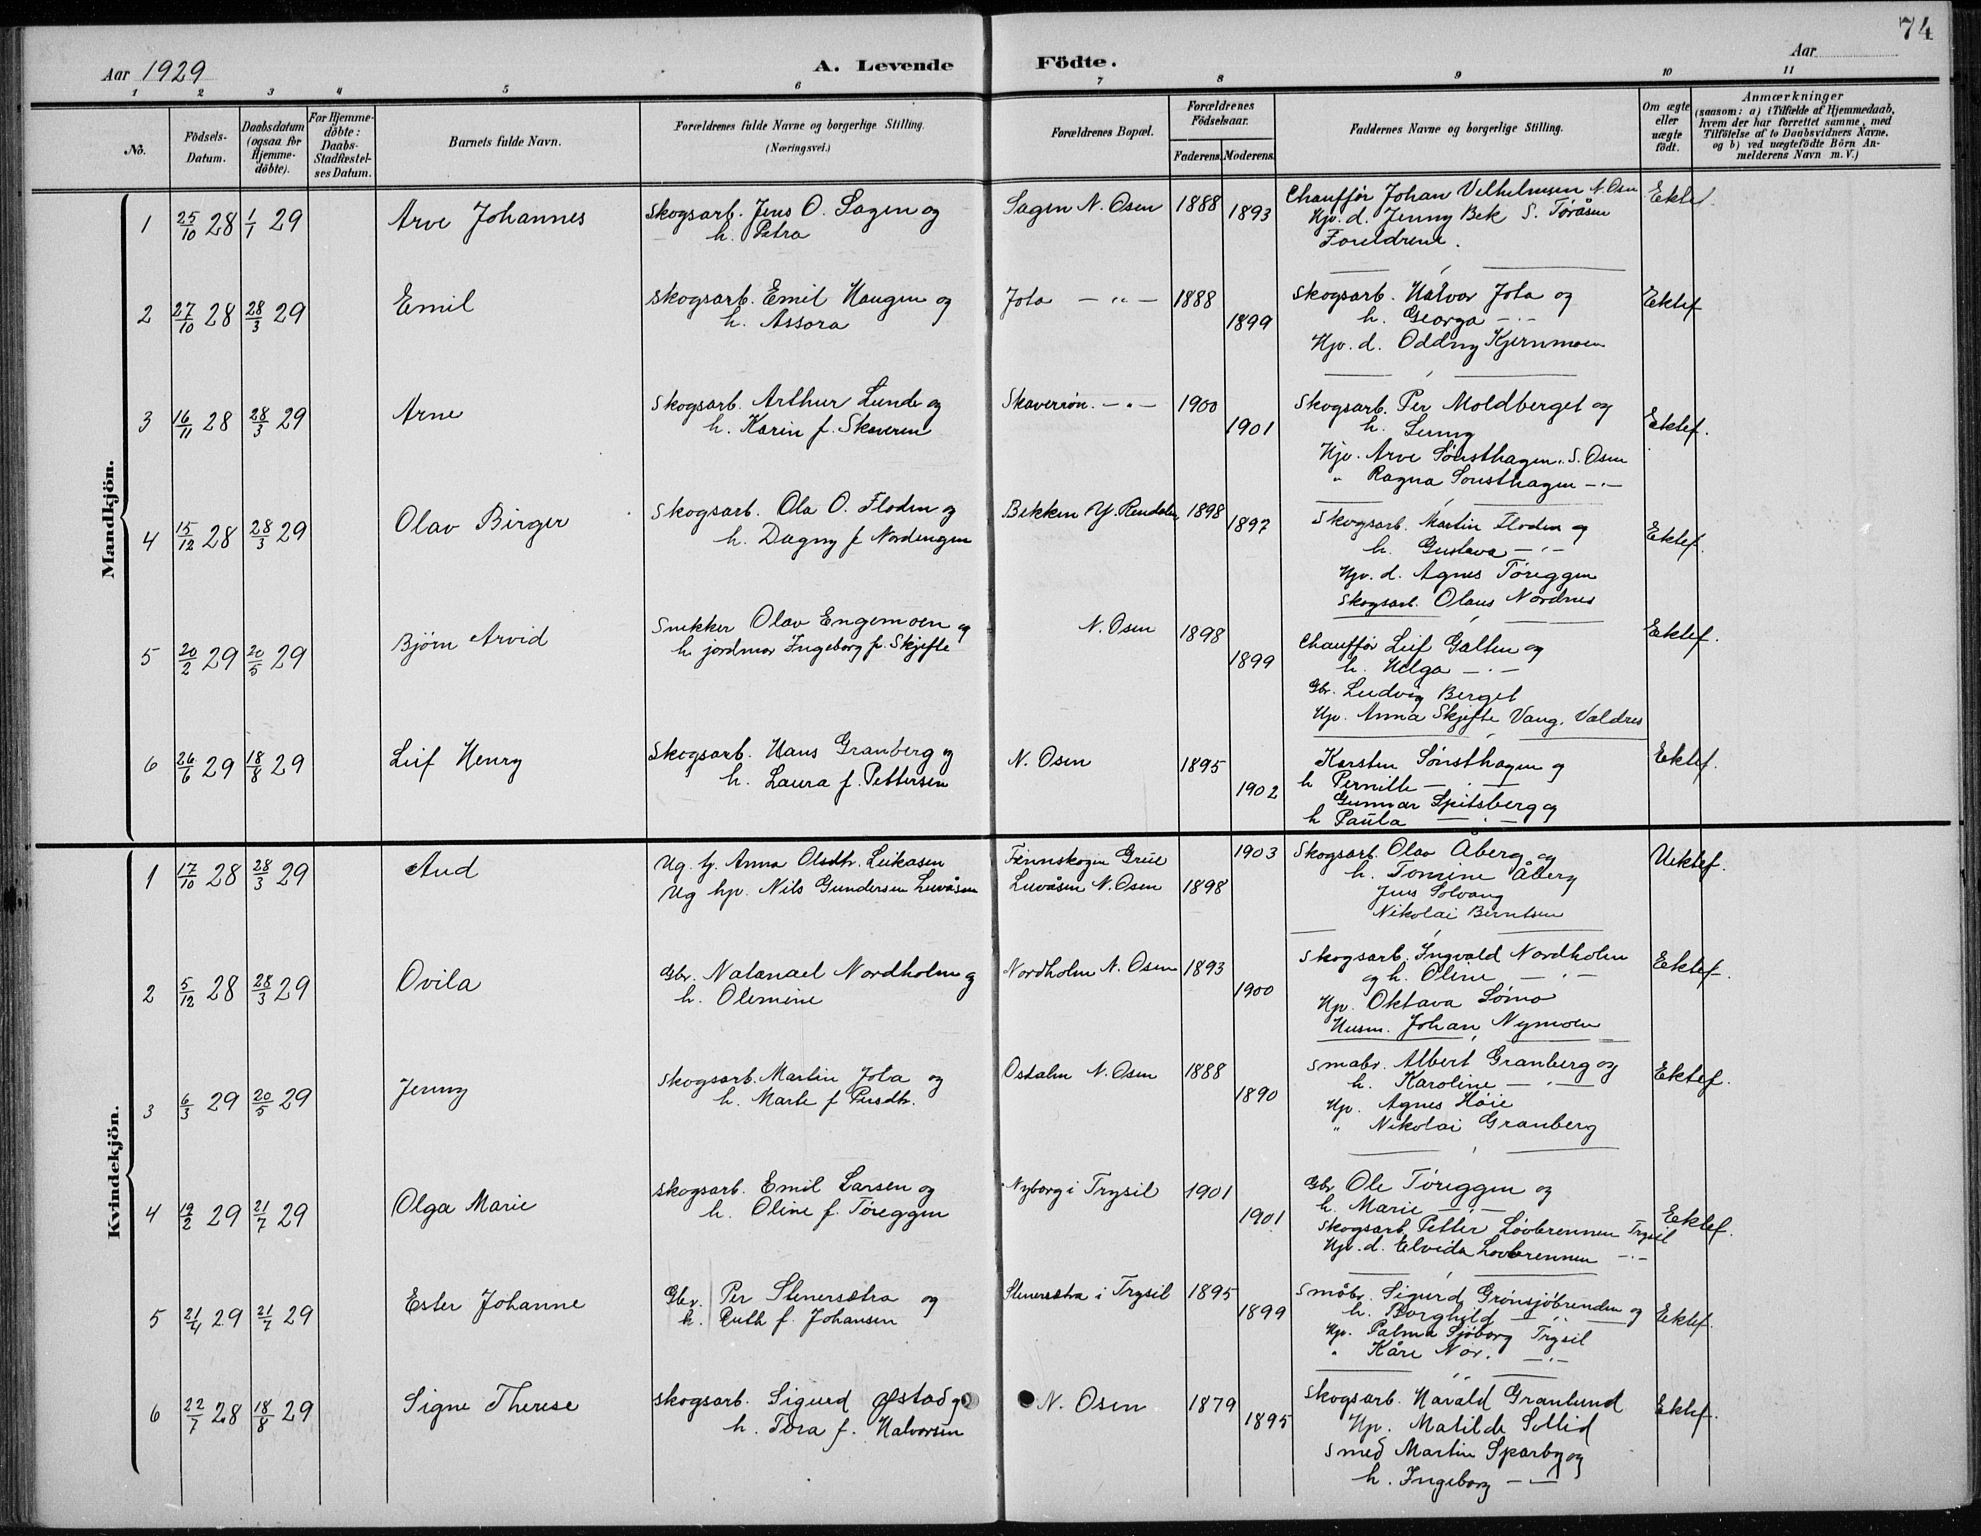 74
Aar 1929
A. Levende Födte.
Aar
1 2 3 4 5 6 7 8 9 10 11
No.
Födsels-Datum.
Daabsdatum (ogsaa for Hjemme-döbte).
For Hjemme-döbte: Daabs-Stadfæstel-ses Datum.
Barnets fulde Navn.
Forældrenes fulde Navne og borgerlige Stilling.
(Næringsvei.)
Forældrenes Bopæl.
Forældrenes Födselsaar.
Faderens. Moderens.
Faddernes Navne og borgerlige Stilling.
Om ægte eller uægte födt.
Anmærkninger
(saasom: a) i Tilfælde af Hjemmedaab, hvem der har forrettet samme, med Tilföielse af to Daabsvidners Navne, og b) ved uægtefödte Börn An-melderens Navn m. V.)
Mandkjön.
1 25/10 28 1/1 29 Arve Johannes Skogsarb. Jens O. Sagen og Sagen N. Osen 1888 1893 Chauffør Johan Vilhelmsen N. Osen Ektef.
h. Petra Hjv. d. Jenny Bek S. Tøråsen
Foreldrene.
2 27/10 28 28/3 29 Emil Skogsarb. Emil Haugen og Jota — " — 1888 1899 Skogsarb. Halvor Jota og Ektef
h. Assora h. Georga — " —
Hjv. d. Oddny Kjernmoen
3 16/11 28 28/3 29 Arne Skogsarb. Arthur Lunde og Skaverrøn. — " — 1900 1901 Skogsarb. Per Moldberget og Ektef.
h. Karin f. Skaveren h. Lenny
Hjv. Arve Sønsthagen. S. Osen
" Ragna Sønsthagen — " —
4 15/12 28 28/3 29 Olav Birger Skogsarb. Ola O. Floden og Bekken Y. Rendalen 1898 1897 Skogsarb. Martin Floden og Ektef.
h. Dagny f. Nordengen h. Gustava — " —
Hjv. d. Agnes Tøreggen
Skogsarb. Olaus Nordnes
5 20/2 29 20/5 29 Bjørn Arvid Snekker Olav Engemoen og N. Osen 1898 1899 Chauffør Leif Galten og Ektef.
h. jordmor Ingeborg f. Skjefte h. Helga — " —
Gbr. Ludvig Berget
Hjv. Anna Skjefte Vang. Valdres
6 26/6 29 18/8 29 Leif Henry Skogsarb. Hans Granberg og N. Osen 1895 1902 Karsten Sønsthagen og Ektef.
h. Laura f. Pettersen h Pernille — " —
Gunnar Spitsberg og
h Paula — " —
Kvindekjön.
1 17/10 28 28/3 29 Aud Ug. tj. Anna Olsdtr. Leikasen Finnskogen Grue 1903 Skogsarb. Olav Åberg og Uektef.
Ug hjv. Nils Gundersen Luvåsen Luvåsen N. Osen 1898 h. Tomine Åberg
Jens Solvang
Nikolai Berntsen
2 5/12 28 28/3 29 Ovila Gbr. Natanael Nordholm og Nordholm N. Osen 1893 1900 Skogsarb. Ingvald Nordholm Ektef.
h. Olemine og h. Oline — " —
Hjv. Oktava Sømo
Husm. Johan Nymoen
3 6/3 29 20/5 29 Jenny Skogsarb. Martin Jota og Ostalm N. Osen 1888 1890 Småbr. Albert Granberg og Ektef.
h. Marte f. Persdtr. h. Karoline — " —
Hjv. Agnes Høie
" Nikolai Granberg
4 19/2 29 21/7 29 Olga Marie Skogsarb. Emil Larsen og Nyborg i Trysil 1901 1901 Gbr Ole Tøreggen og Ektef.
h. Oline f. Tøreggen h. Marie — " —
Skogsarb. Petter Løvbrennen Trysil
Hjv. d. Elvida Løvbrennen — " —
5 21/4 29 21/7 29 Ester Johanne Gbr. Per Stenersætra og Stenersætra i Trysil 1895 1899 Småbr. Sigurd Grønsjøbrenden og Ektef.
h. Ruth f. Johansen h. Borghild — " —
Hjv. Palma Sjøberg Trysil
" Kåre Nor. — " —
6 22/7 28 18/8 29 Signe Therese Skogsarb. Sigurd Østad og N. Osen 1879 1895 Skogsarb. Harald Granlund Ektef.
h. Tora f. Halvorsen Hjv. Matilde Sollid
Smed Martin Sparby og
h. Ingeborg — " —